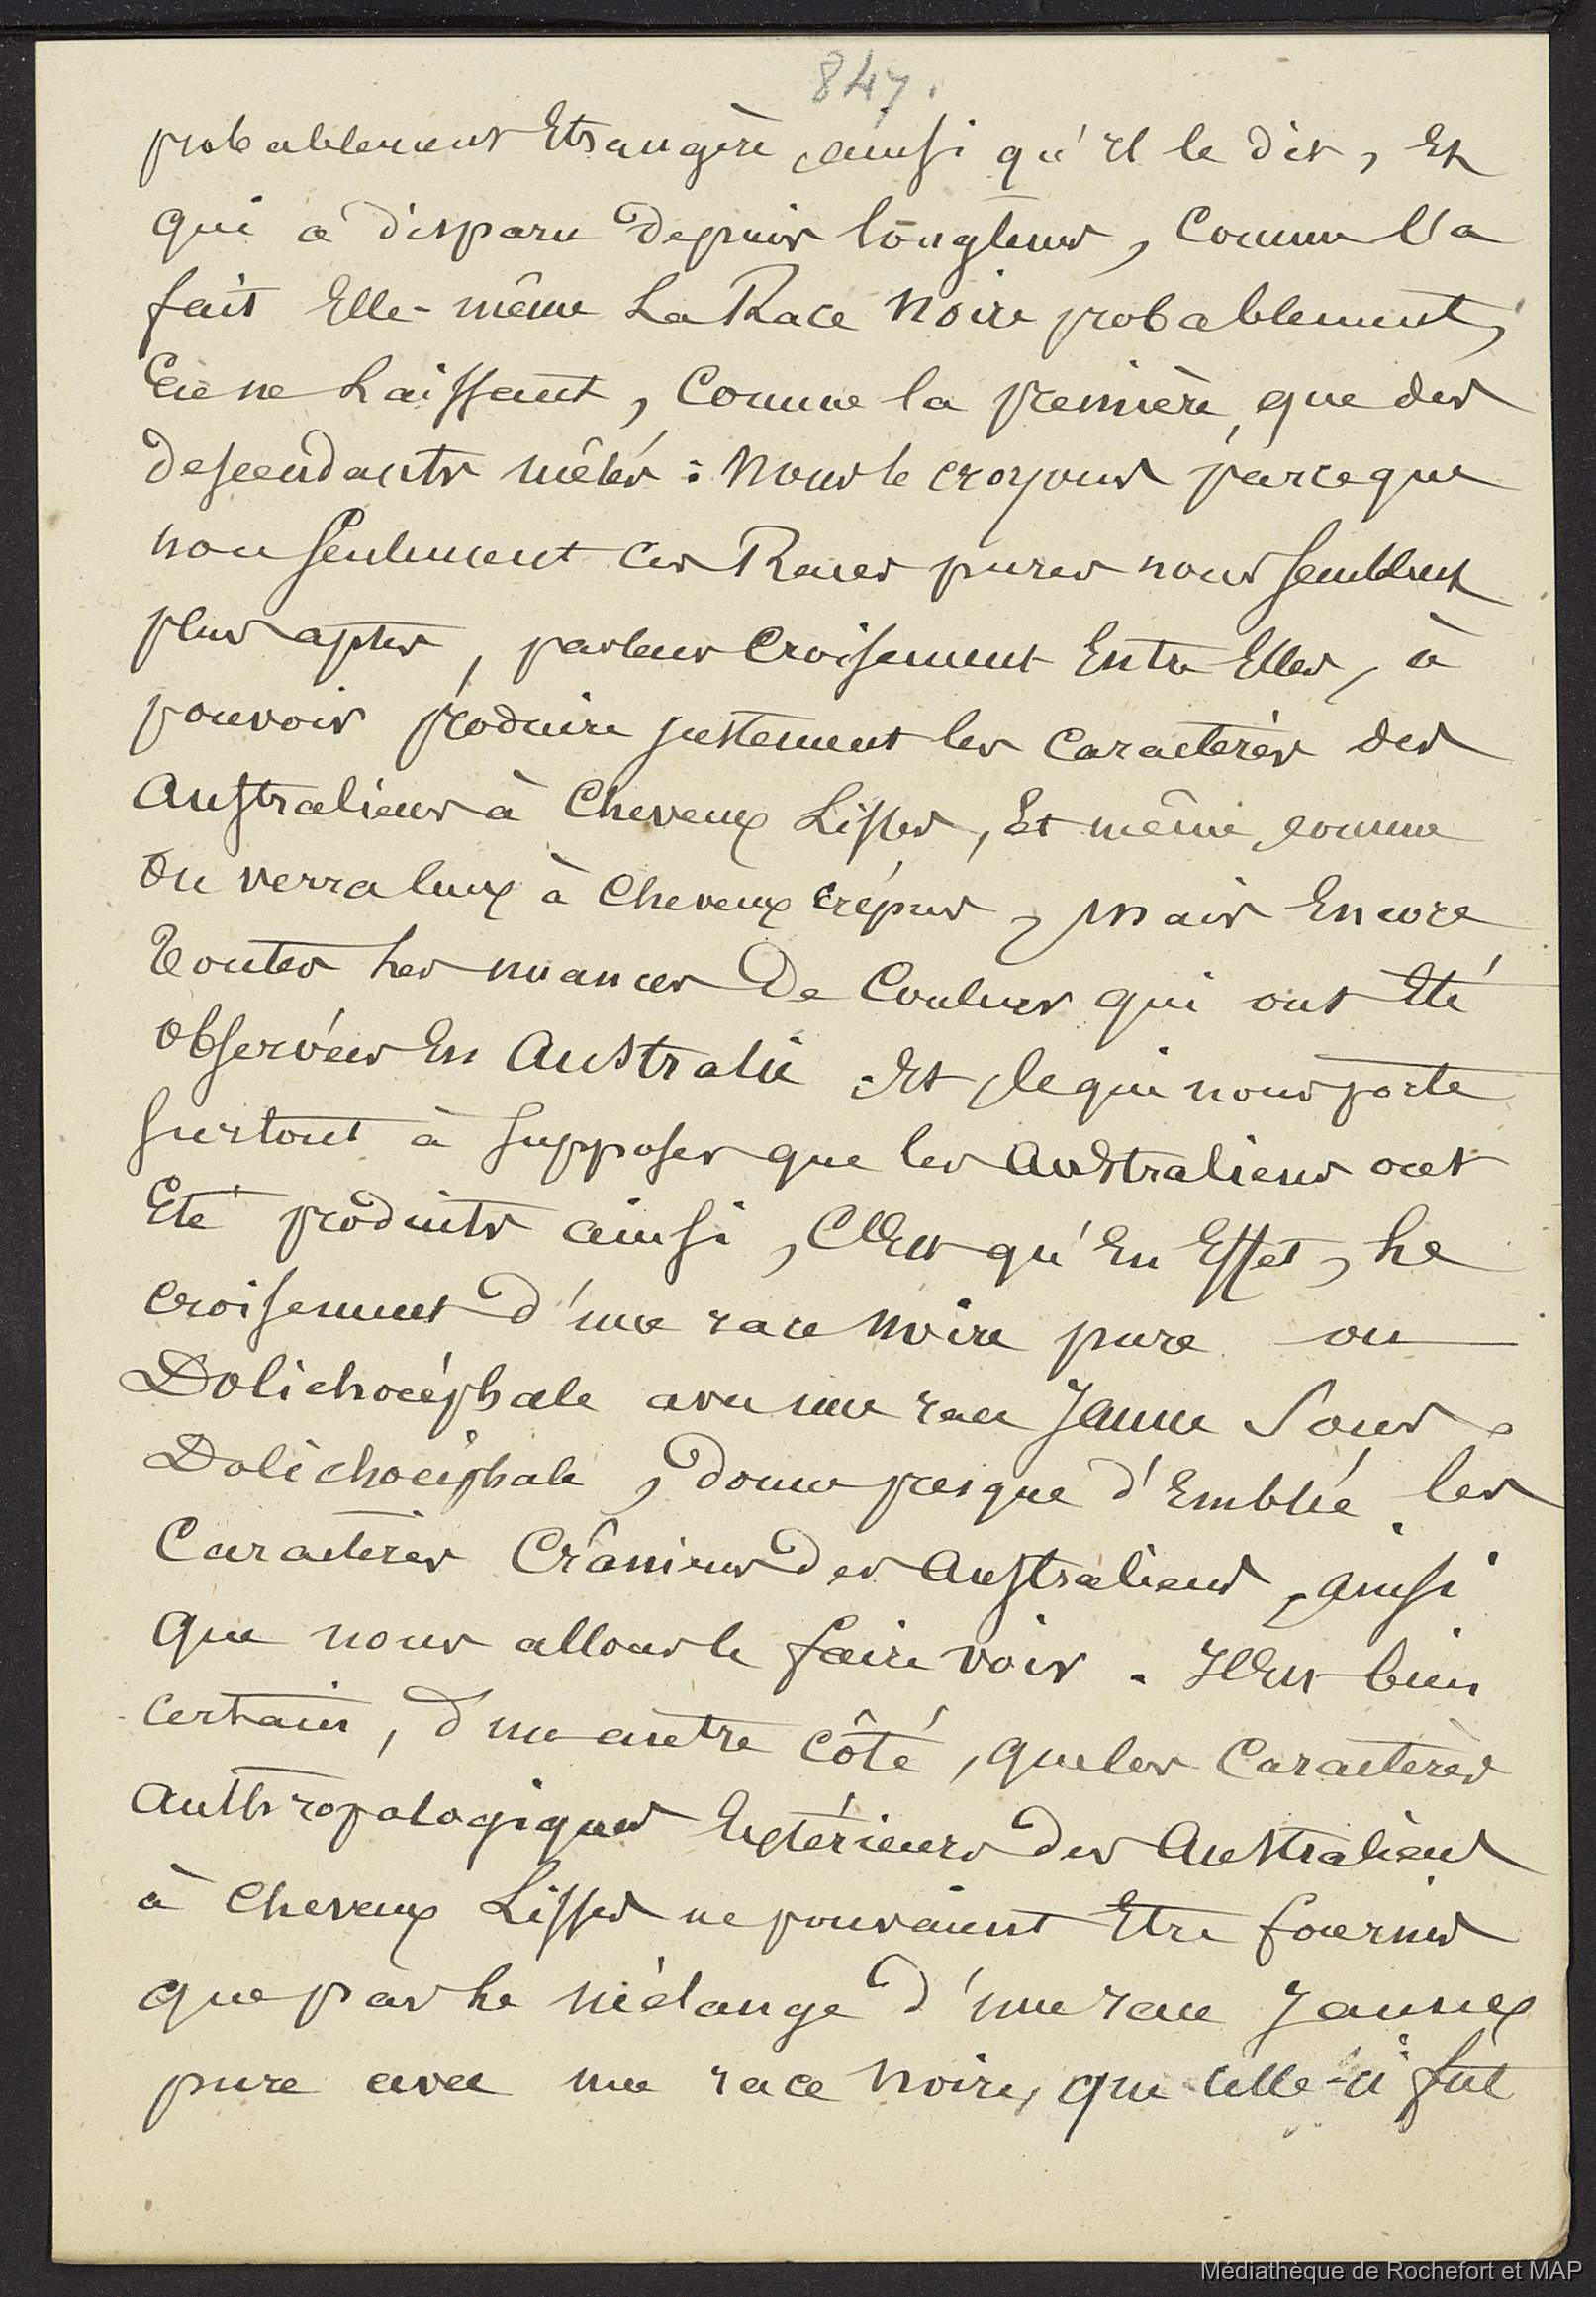 847.
probablement Etrangère, ainsi qu'il le dit, Et
qui a disparu Depuis longtems, Comme l'a
fait Elle-même La Race Noire probablement,
En ne Laissant, Comme la première, que des
descendants mêlés : Nous le croyons parceque
non Seulement ces Races pures nous semblent
plus aptes, par leur Croisement Entre Elles, à
pouvoir produire justement les Caractères des
Australiens à Cheveux Lisses, Et même, comme
on verra ceux à Cheveux crépus, mais Encore
Toutes les nuances De Couleurs qui ont Eté
observées En Australie. Et ce qui nous porte
surtout à supposer que les Australiens ont
Eté produits ainsi, C'Est qu'En Effet, le
croisement d'une race Noire pure ou
Dolichocéphale avec une race Jaune Sous-
Dolichocéphale, donne presque d'Emblée les
Caractères Crâniens des Australiens, ainsi
que nous allons le faire voir. Il Est bien
certain, d'un autre côté, que les Caractères
Anthropologiques Extérieurs des Australiens
à Cheveux Lisses ne pouvaient Etre fournis
que par le mélange d'une race Jaune
pure avec une race Noire, que celle-ci fut
Médiathèque de Rochefort et MAP